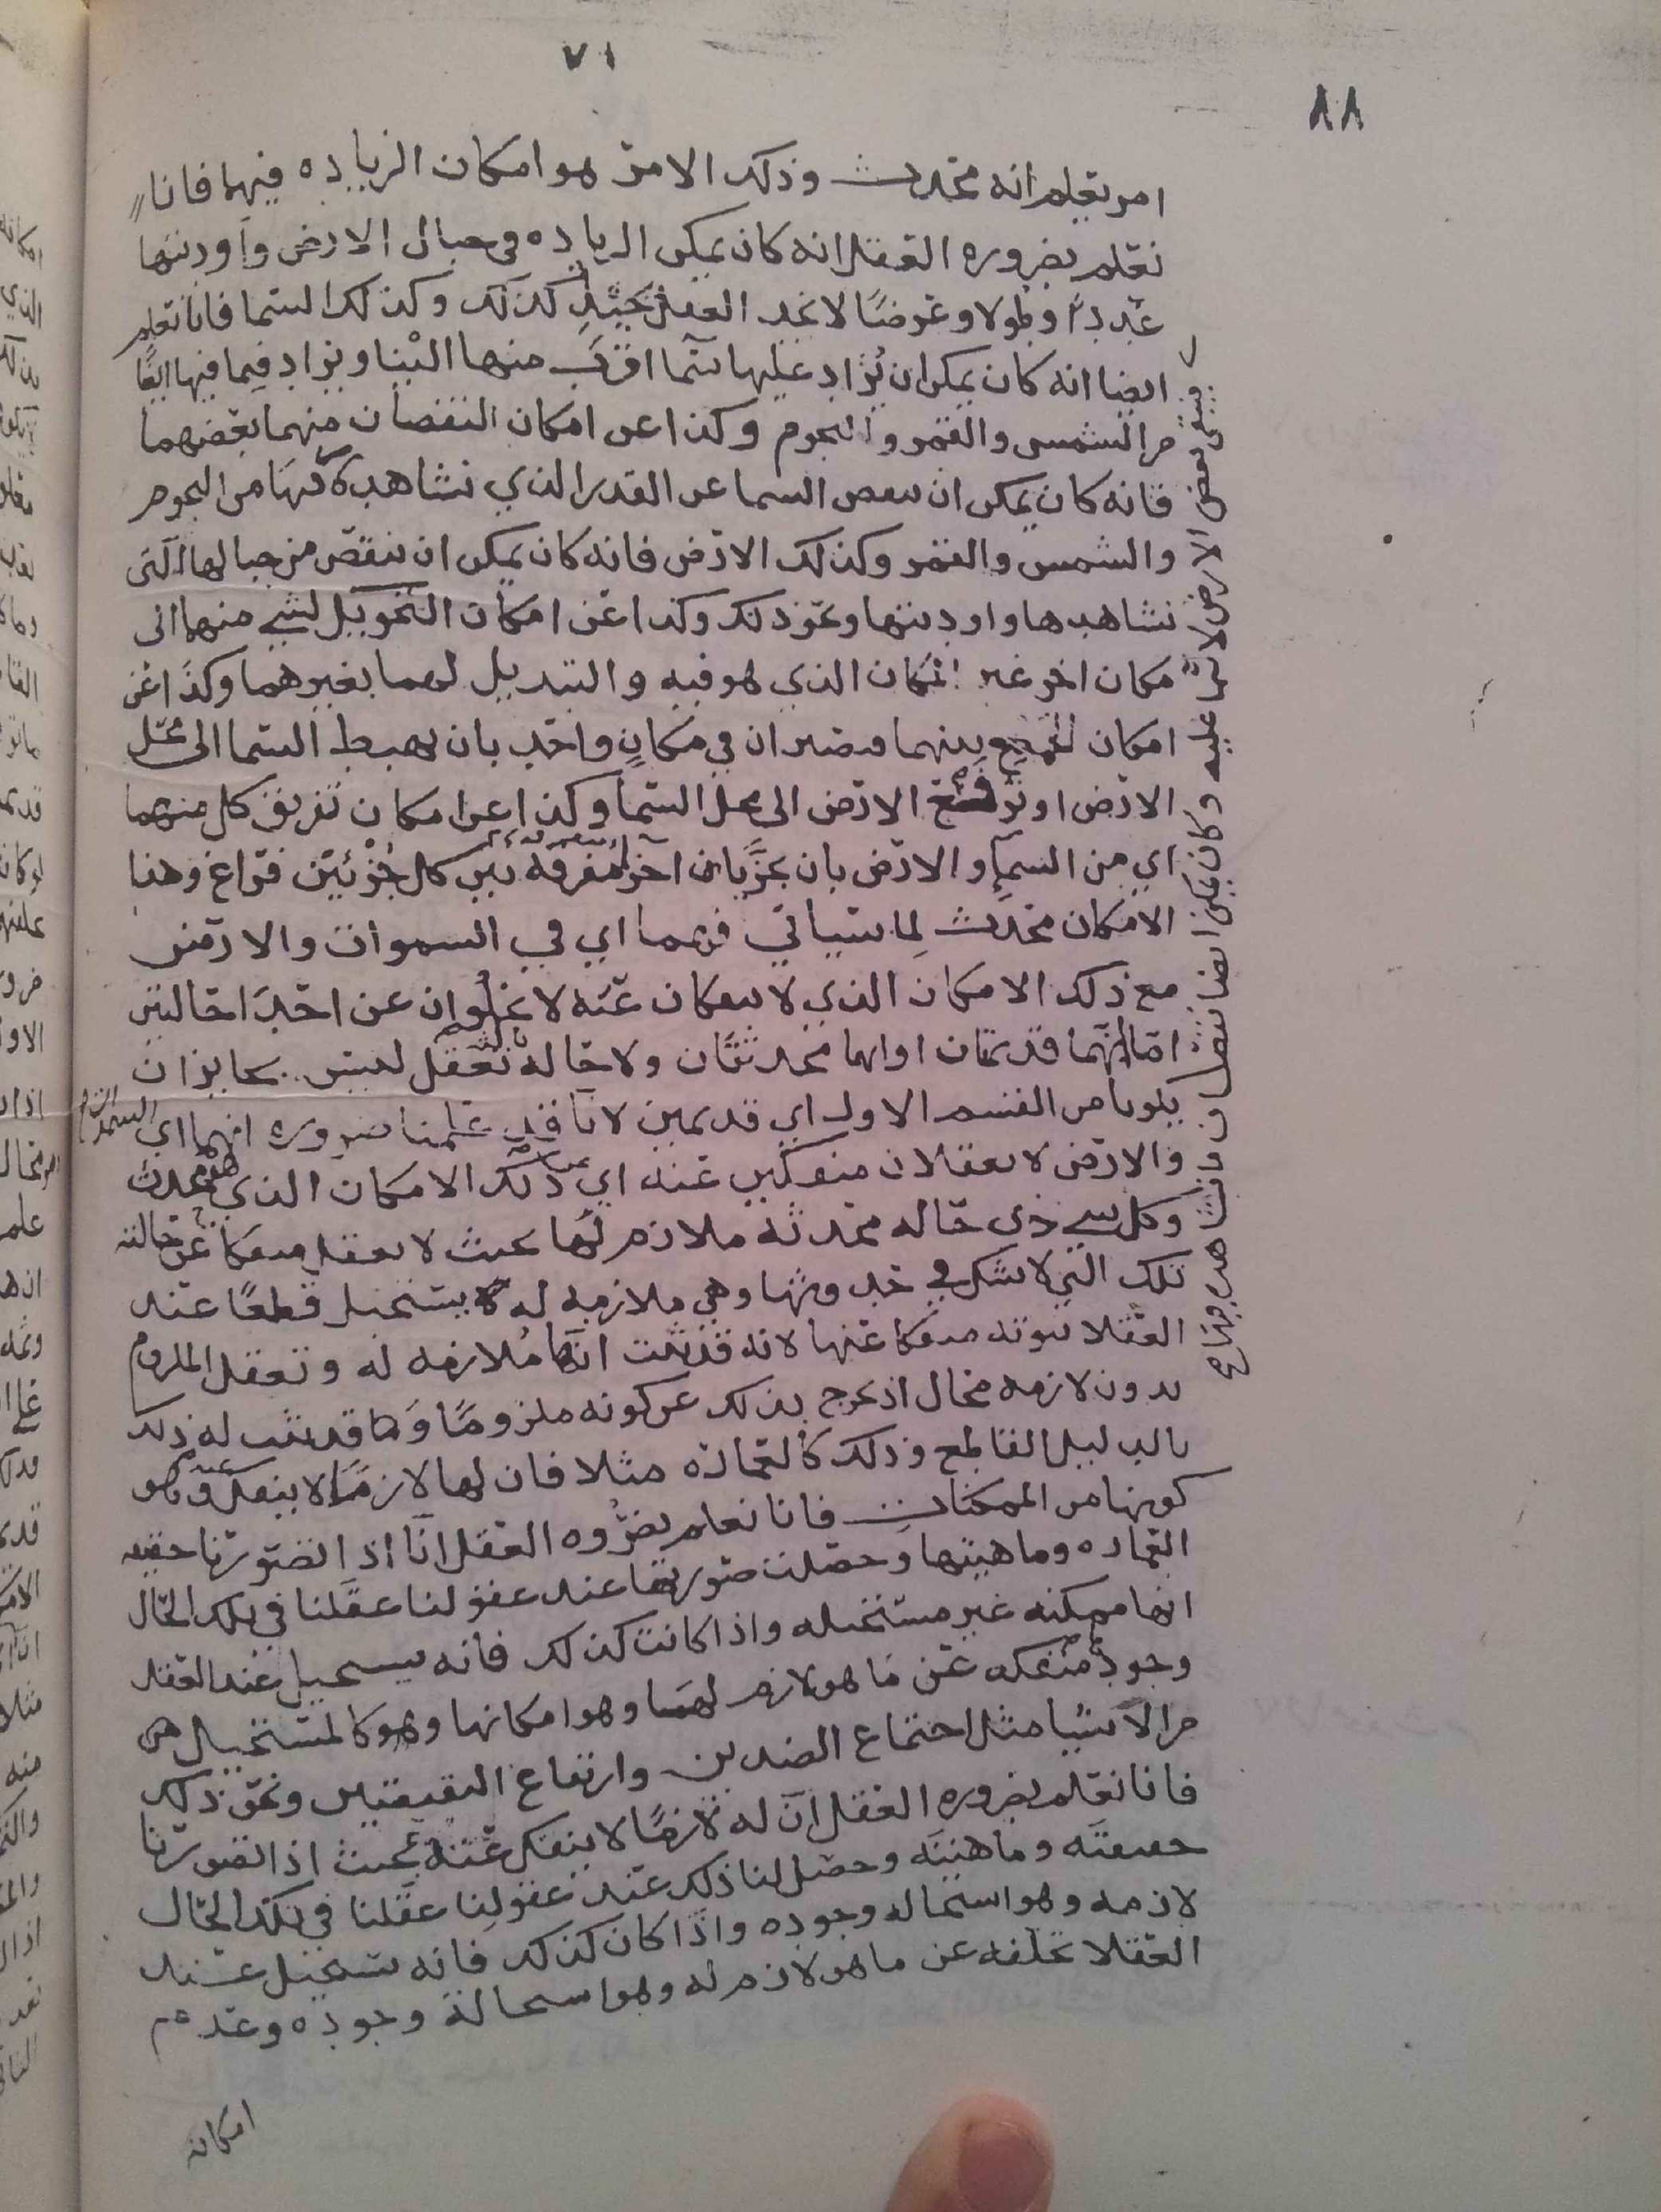 ٧١
٨٨
امر يعلم انه محدث وذلك الامر هو امكان الزياده فيهما فانا
نعلم بضروره العقل انه كان يمكن الزياده في جبال الارض واوديتها
عددًا وطولا وعرضًا لا نجد العقل كذلك وكذلك السما فانا نعلم
ايضا انه كان يمكن ان يزاد عليها سما اقرب منها الينا ويزاد فيما فيها ايضًا
من الشمس والقمر والنجوم وكذا عن امكان النقصان منهما بعضهما
فانه كان يمكن ان ينقص السما عن القدر الذي نشاهده فيها من النجوم
والشمس والقمر وكذلك الارض فانه كان يمكن ان ينقص من جبالها التي
نشاهدها واوديتها ونحو ذلك وكذا عن امكان التحويل لشي منهما الى
مكان اخر غير المكان الذي هو فيه والتبديل لهما بغيرهما وكذا عن
امكان الجمع بينهما فيصيران في مكانٍ واحد بان يهبط السما الى محل
الارض او ترفع الارض الى محل السما وكذا عن امكان تفريق كل منهما
اي من السمآ والارض بان يجزيان اجزا متفرقه بين كل جزئين فراغ وهذا
الامكان محدث لِما سياتي فهما اي في السموات والارض
مع ذلك الامكان الذي لا ينفكان عنه لا يخلوان عن احد الحالتين
اما انهما قديمتان او انهما محدثتان ولا حاله تعقل ليس بجايز ان
يكونا من القسم الاول اي قديمين لانا قد علمنا ضروره انهما اي السموات
والارض لا يعقلان منفكين عنه اي ذلك الامكان الذي هو محدث
وكل شي ذي حاله محدثه ملازم لها بحيث لا يعقل منفكا عن حالته
تلك التي لا شك في حدوثها وهي ملازمه له يستحيل قطعًا عند
العقلا ثبوته منفكا عنها لانه قد ثبت انها مُلازمه له وتعقل الملزوم
بدون لازمه محال اذ يخرج بذلك عن كونه ملزومًا وما قد ثبت له ذلك
بالدليل القاطع وذلك كالعماره مثلا فان لها لازمًا لا ينفك عنه وهو
كونها من الممكنات فانا نعلم بضروه العقل انا اذا تصورنا حقيقه
العماره وماهيتها وحصلت صورتها عند عقولنا عقلنا في تلك الحال
انها ممكنه غير مستحيله واذا كانت كذلك فانه يستحيل عند العقلا
وجودها منفكه عن ما هو لازم لها وهو امكانها وهو كالمستحيل
من الاشيا مثل اجتماع الضدين وارتفاع النقيضين ونحو ذلك
فانا نعلم بضروره العقل ان له لازمًا لا ينفك عنه بحيث اذا تصورنا
حقيقته وماهيته وحصل لنا ذلك عند عقولنا عقلنا في تلك الحال
لازمه وهو استحاله وجوده واذا كان كذلك فانه يستحيل عند
العقلا تخلفه عن ما هو لازم له وهو استحالة وجوده وعدم
امكانه